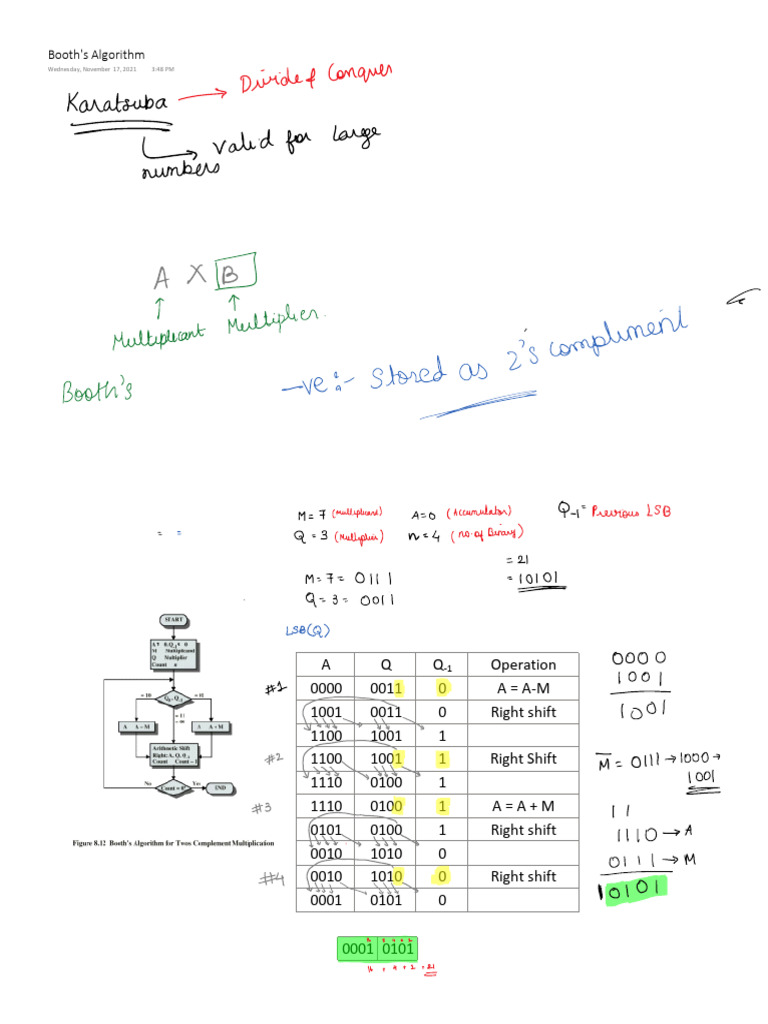 Booth's Algorithm
Wednesday, November 17, 2021 3:48 PM
Karatsuba → Divide & Conquer
→ Valid for large
numbers
A X B
↑ ↑
Multiplicant Multiplier.
Booth's
-ve :- Stored as 2's compliment
M = 7 (Multiplicand) A=0 (Accumulator) Q-1 = Previous LSB
Q = 3 (Multiplier) n = 4 (no. of Binary)
= =
= 21
M = 7 = 0111 = 10101
Q = 3 = 0011
LSB(Q)
START
Multiplicand
Multiplier
Count n
= 10 = 01
Q0, Q-1
= 11
= 00
A A – M A A + M
Arithmetic Shift
Right: A, Q, Q-1
Count Count – 1
No Count = 0? Yes END
Figure 8.12 Booth's Algorithm for Twos Complement Multiplication
A Q Q-1 Operation
#1 0000 0011 0 A = A-M
1001 0011 0 Right shift
1100 1001 1
#2 1100 1001 1 Right Shift
1110 0100 1
#3 1110 0100 1 A = A + M
0101 0100 1 Right shift
0010 1010 0
#4 0010 1010 0 Right shift
0001 0101 0
0000
1001
1001
M = 0111 → 1000 →
1001
11
1110 → A
0111 → M
10101
0001 0101
16 + 4 + 2 = 21